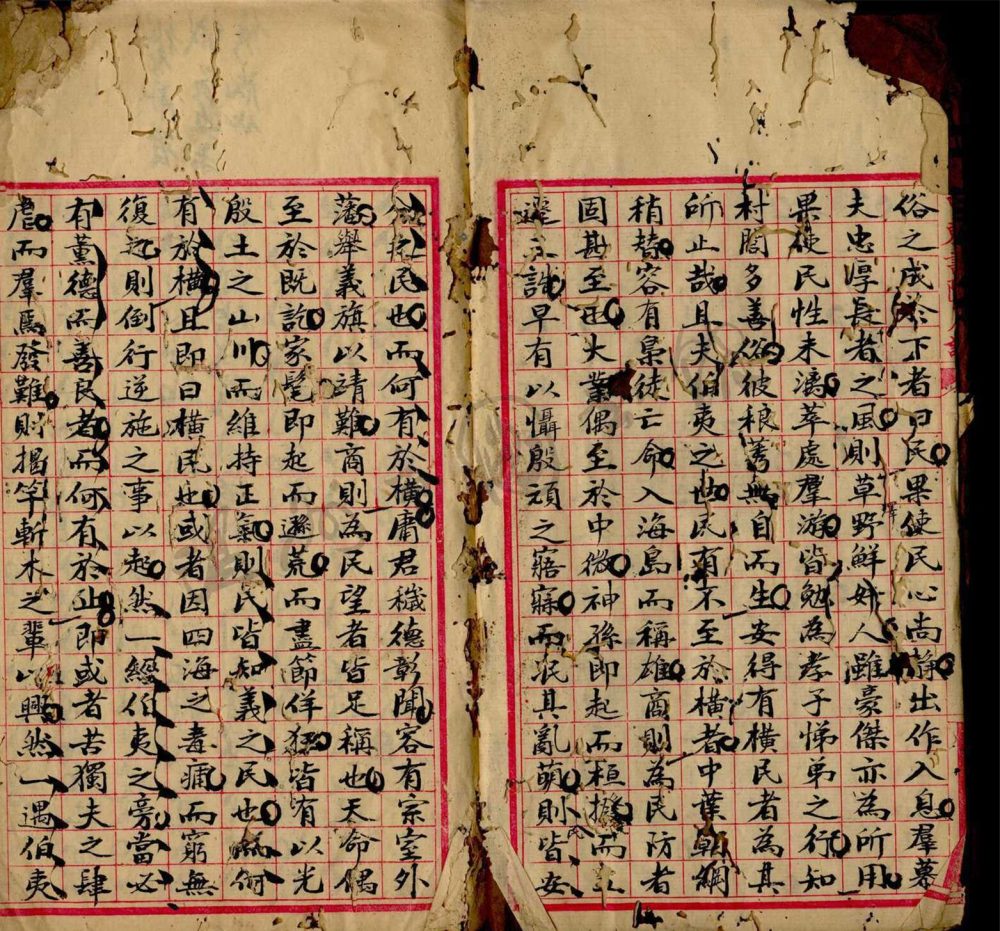 俗之成於下者曰民果使民心尚靜出作入息羣慕
夫忠厚長者之風則草野鮮奸人雖豪傑亦為所用
果使民性未漓萃處羣游皆勉為孝子悌弟之行知
村閭多善俗彼稂莠無自而生安得有橫民者為其
所止哉且夫伯夷之世民有不至於橫者中葉朝綱
稍替容有梟徒亡命入海島而稱雄商則為民防者
固甚至大業偶至於中微神孫即起而桓撥而
誅早有以懾殷頑之寤寐而泯其亂萌則皆安
民也而何有於橫庸君穢德彰聞容有宗室外
藩舉義旗以靖難商則為民望者皆足稱也天命偶
至於既訖家髦即起而遯荒而盡節佯狂皆有以光
殷土之山川而維持正氣則民皆知義之民也而何
有於橫且即曰橫民也或者因四海之毒痡而窮無
復起則倒行逆施之事以起然一經伯夷之旁當必
有薰德而善良者而何有於止即或者苦獨夫之肆
虐而羣焉發難則揭竿斬木之輩以興然一遇伯夷